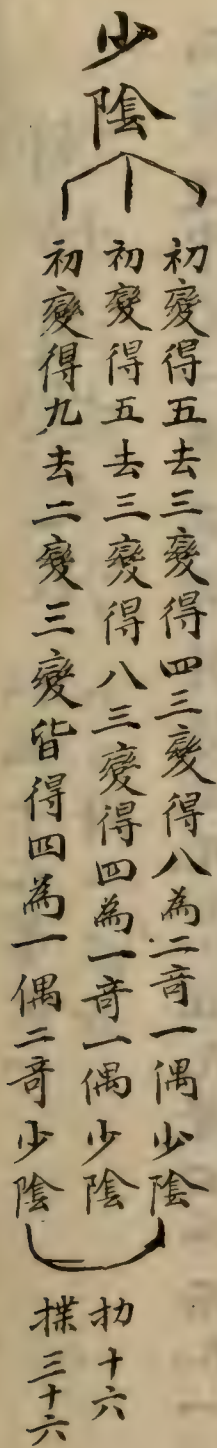 少陰
初變得五去三變得四三變得八為二竒一偶少陰
初變得五去三變得八三變得四為一竒一偶少陰
初變得九去二變三變皆得四為一偶二竒少陰
扐十六
揲三十六